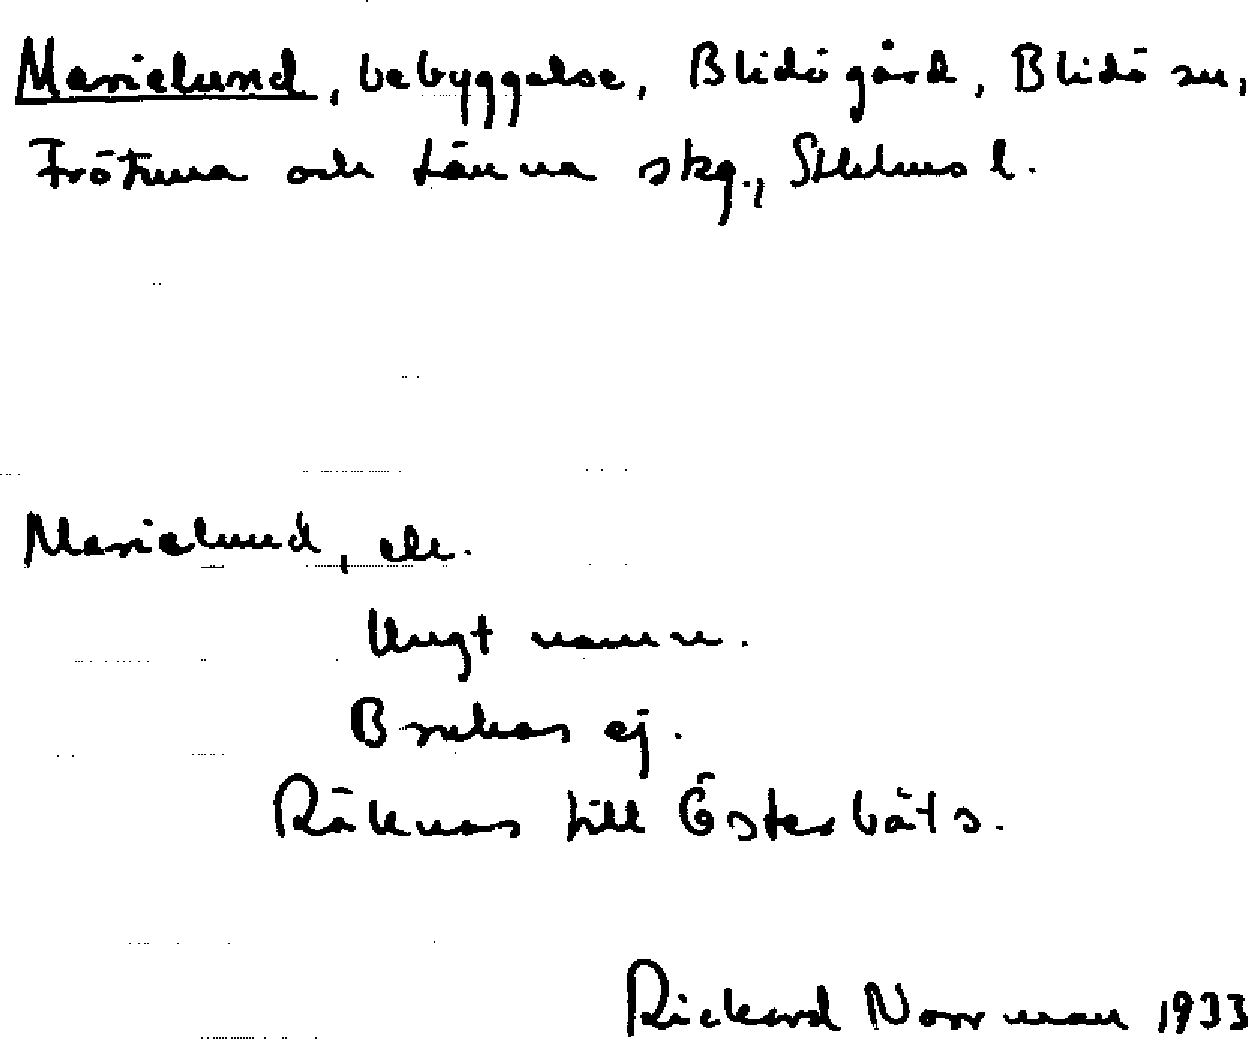 Marielund, bebyggelse, Blidö gård, Blidö sn,
Frötuna och Länna skg., Sthlms l.
Marielund, ele.
Ungt namn.
Brukas ej.
Räknas till Österbåts.
Rickard Norrman 1933